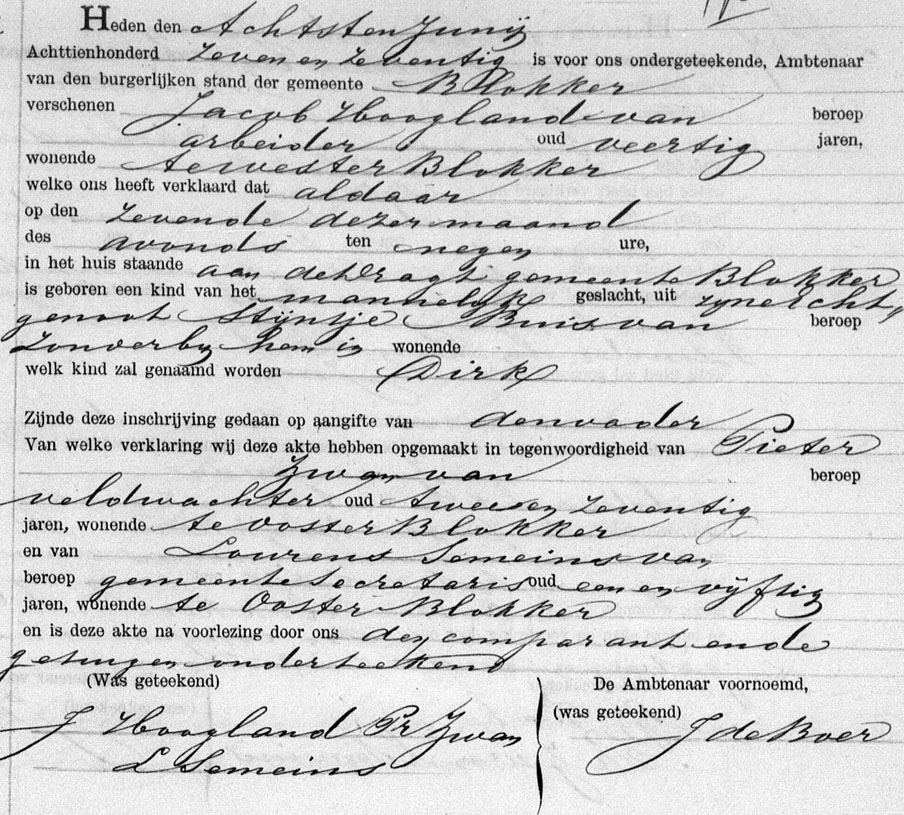 Heden den Achtsten Junij
Achttienhonderd zeven en zeventig is voor ons ondergeteekende, Ambtenaar
van den burgerlijken stand der gemeente Blokker
verschenen Jacob Hoogland van beroep
arbeider oud veertig jaren,
wonende te Wester Blokker
welke ons heeft verklaard dat aldaar
op den zevende dezer maand
des avonds ten negen ure,
in het huis staande aan de Dragt gemeente Blokker
is geboren een kind van het mannelijk geslacht, uit zijn echt„
genoot Stijntje Buis van beroep
zonder bij hem in wonende
welk kind zal genaamd worden Dirk
Zijnde deze inschrijving gedaan op aangifte van den vader
Van welke verklaring wij deze akte hebben opgemaakt in tegenwoordigheid van Pieter
Zwan van beroep
veldwachter oud twee en zeventig
jaren, wonende te Ooster Blokker
en van Lourens Semeins van
beroep gemeente secretaris oud een en vijftig
jaren, wonende te Ooster Blokker
en is deze akte na voorlezing door ons den comparant en de
getuigen onderteekend
(Was geteekend)
De Ambtenaar voornoemd,
(was geteekend)
J Hoogland Pr Zwan
L Semeins
J de Boer